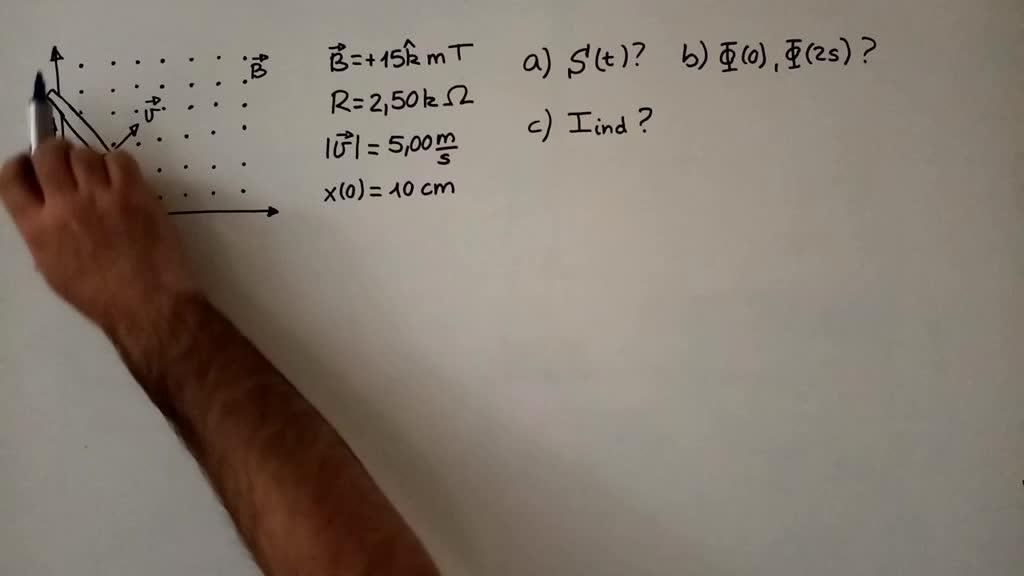 B⃗
v⃗
B⃗=+15k̂ mT
R=2,50kΩ
|v⃗|=5,00 m/s
x(0)=10 cm
a) S(t)? b) Φ(0), Φ(2s)?
c) Iind?